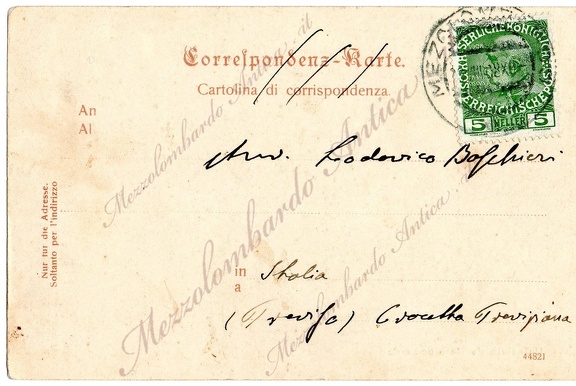 Correspondenz-Karte.
Cartolina di corrispondenza.
MEZZOLOMBARDO
KAISERLICHE KÖNIGLICHE
ÖSTERREICHISCHE POST
5 HELLER 5
An
Al
Avv. Lodovico Boschieri
Nur für die Adresse.
Soltanto per l'indirizzo
in
a
Italia
(Treviso) Crocetta Trevigiana
44821
Mezzolombardo Antica.it
Mezzolombardo Antica
Mezzolombardo Antica